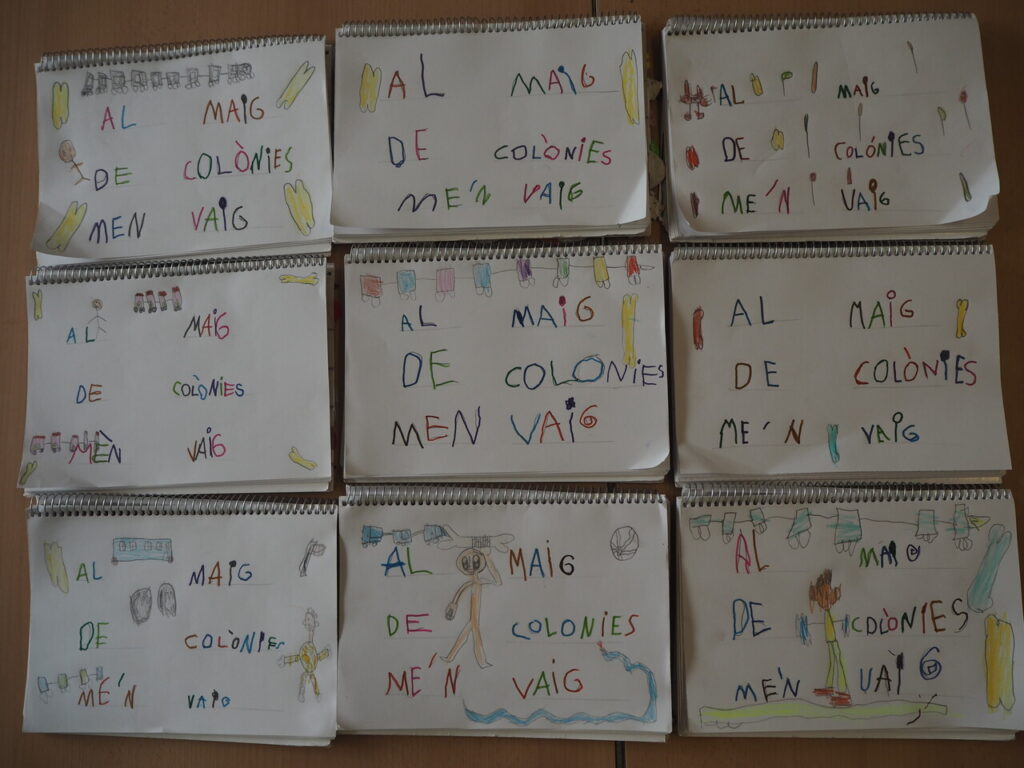 AL MAIG
DE COLÒNIES
MEN VAIG
AL MAIG
DE COLÒNIES
ME'N VAIG
AL MAIG
DE COLÓNIES
ME'N VAIG
AL MAIG
DE COLÒNIES
MEN VAIG
AL MAIG
DE COLONIES
MEN VAIG
AL MAIG
DE COLÒNIES
ME'N VAIG
AL MAIG
DE COLÒNIES
ME'N VAIG
AL MAIG
DE COLONIES
ME'N VAIG
AL MAIG
DE COLÒNIES
ME'N VAIG